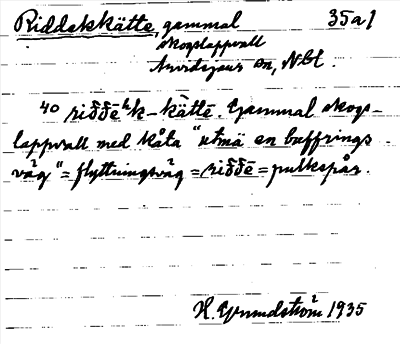 Riddekkätte, gammal 35a1
skogslappvall
Arvidsjaur sn, Nbl.
40 riδδēʰk-kättē. Gammal skogs-
lappvall med kåta "utmä en buffrings
väg" = flyttningsväg = riδδē = pulkspår.
H. Grundström 1935